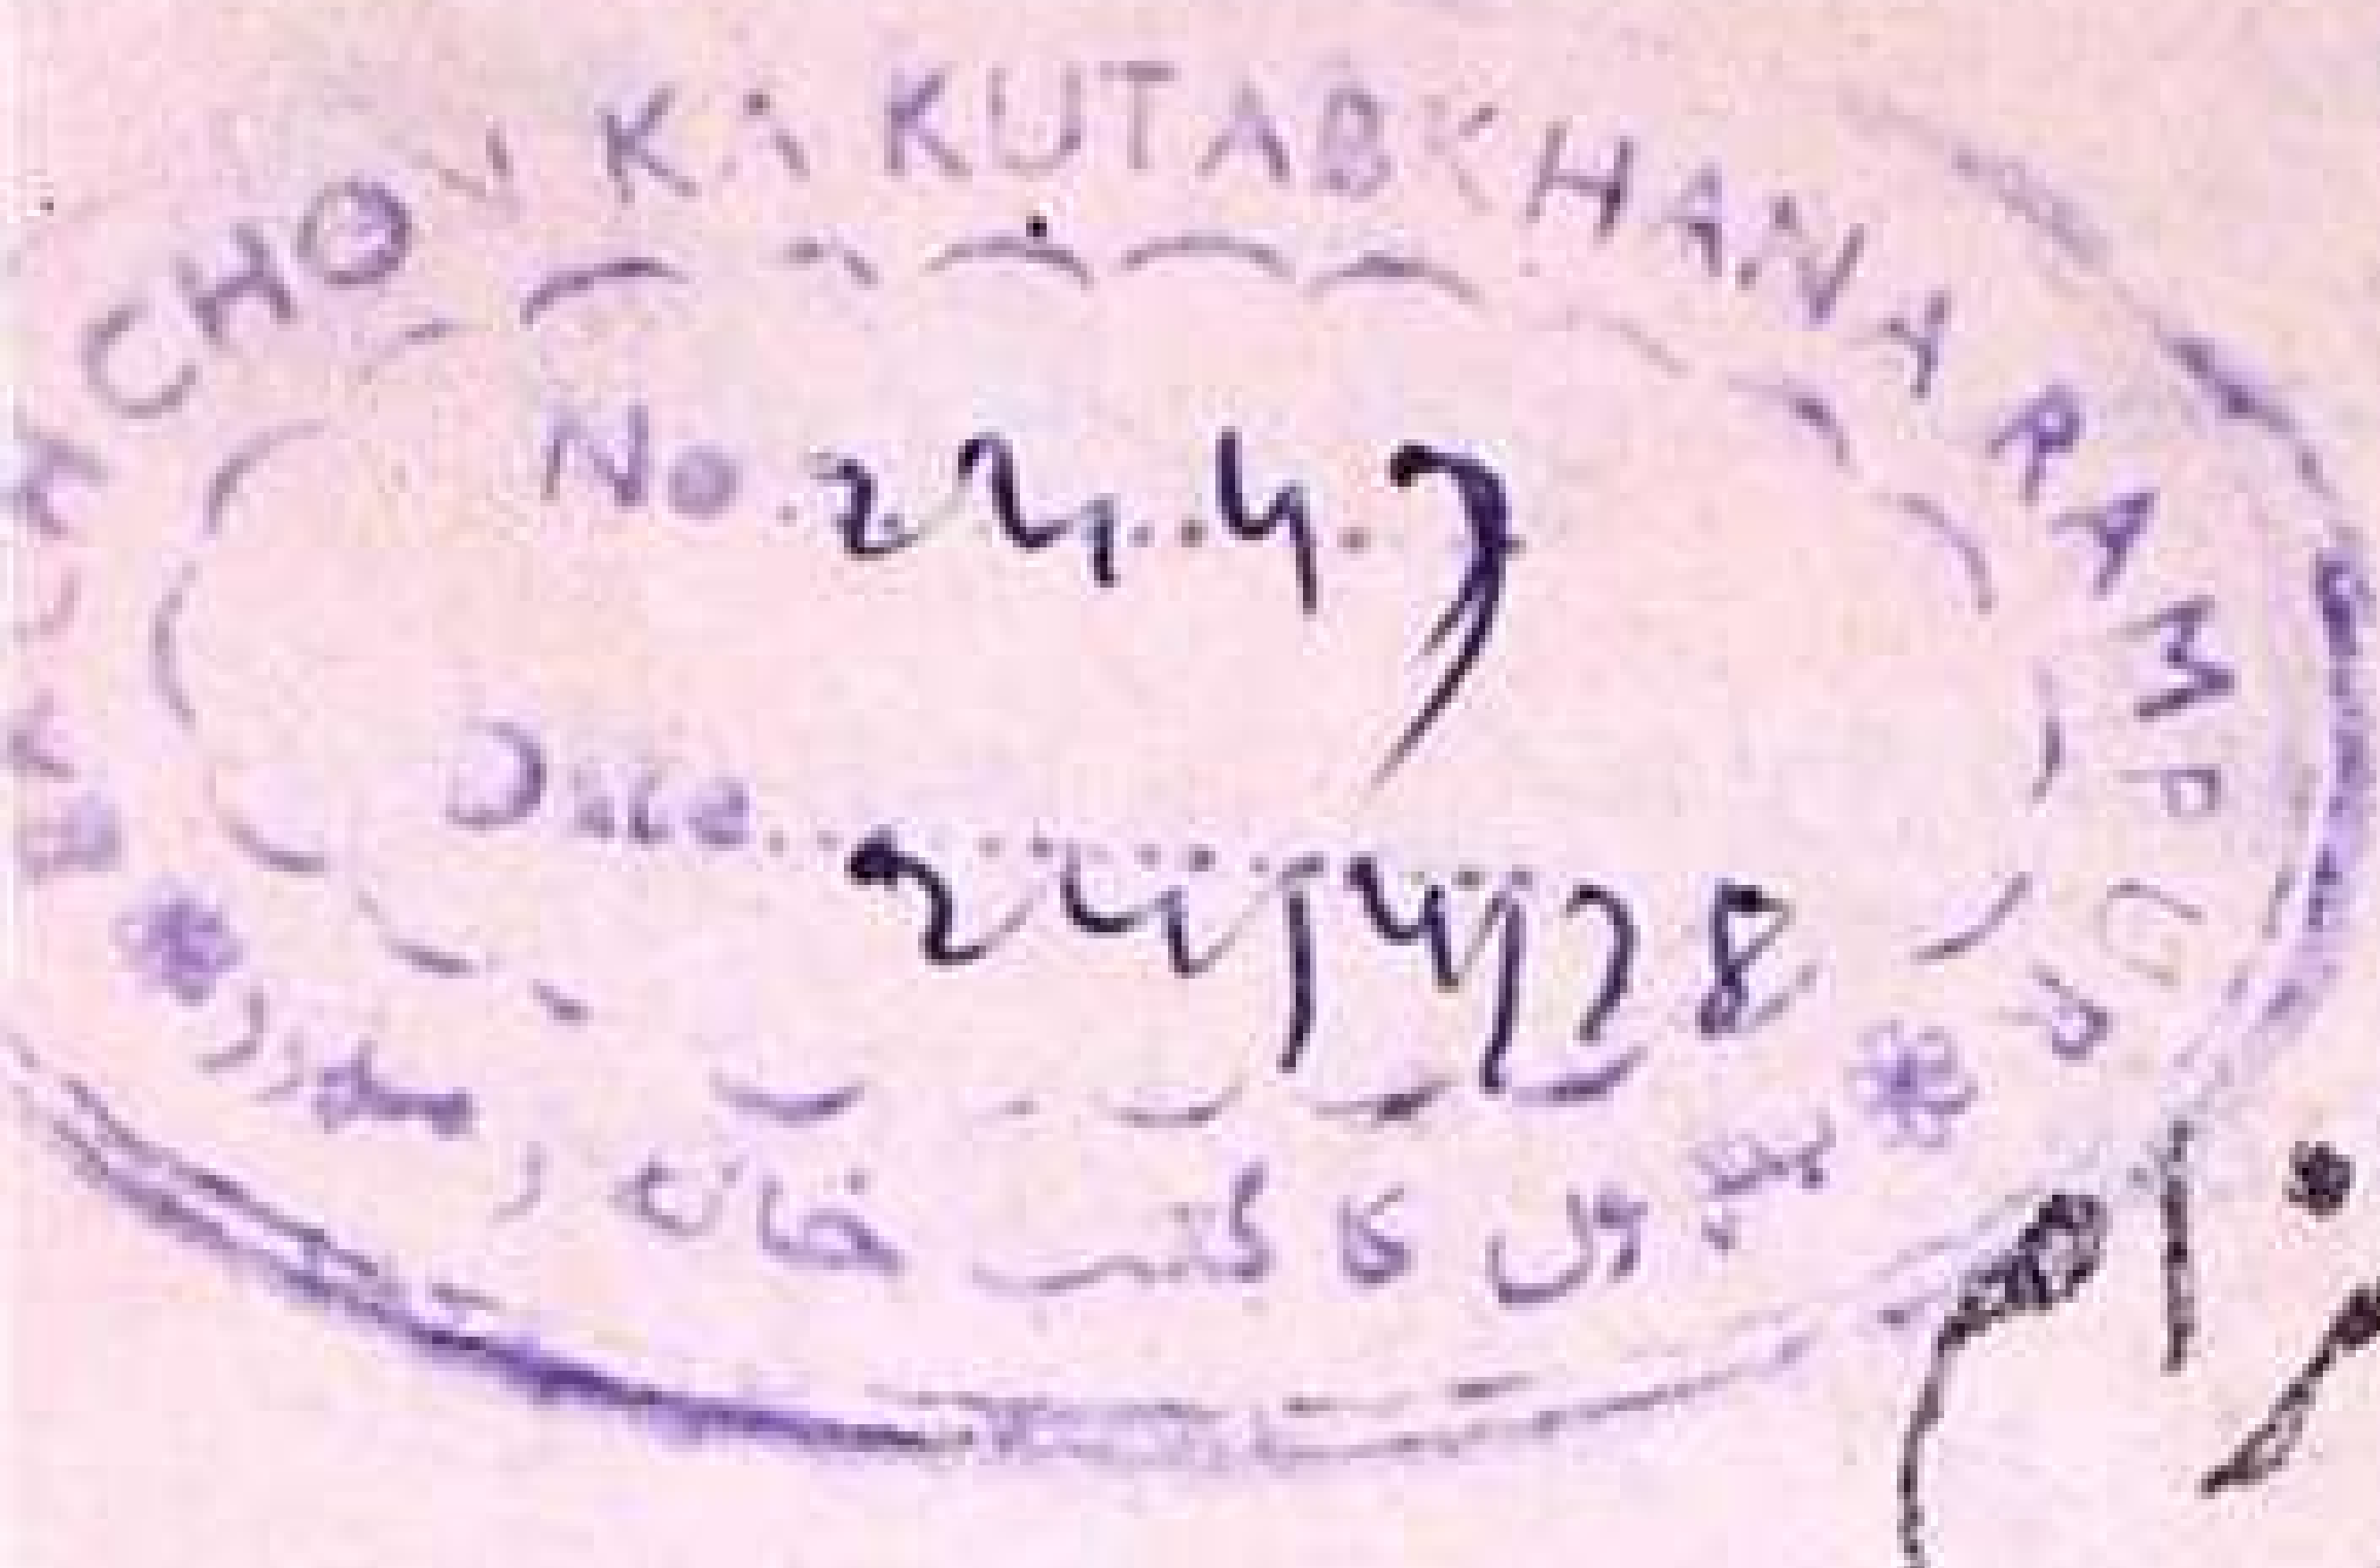 CHOV KA KUTABKHANA RAMPUR
No. 2447
Date. 24/4/78
بچوں کا کتب خانہ